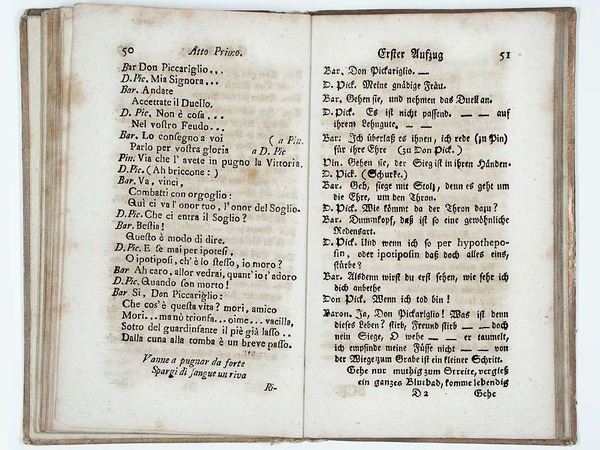 50 Atto Primo.
Bar Don Piccariglio...
D.Pic. Mia Signora...
Bar. Andate
Accettate il Duello.
D. Pic. Non è cosa...
Nel vostro Feudo...
Bar. Lo consegno a voi ( a Pin.
Parlo per vostra gloria a D. Pic
Pin. Via che l' avete in pugno la Vittoria.
D.Pic. (Ah briccone : )
Bar. Va, vinci,
Combatti con orgoglio:
Qui ci va l' onor tuo, l'onor del Soglio.
D. Pic. Che ci entra il Soglio?
Bar. Bestia!
Questo è modo di dire.
D.Pic. E se mai per ipotesi,
O ipotiposi, ch' è lo stesso, io moro?
Bar Ah caro, allor vedrai, quant' io t' adoro
D.Pic. Quando son morto!
Bar Si, Don Piccariglio:
Che cos' è questa vita? mori, amico
Mori... ma nò trionfa... oime... vacilla,
Sotto del guardinfante il piè già lasso..
Dalla cuna alla tomba è un breve passo.
Vanne a pugnar da forte
Spargi di sangue un riva
Ri-
Erster Aufzug 51
Bar. Don Pickariglio. —
D. Pick. Meine gnädige Fräu.
Bar. Gehen sie, und nehmen das Duell an.
D. Pick. Es ist nicht passend. — — auf
ihrem Lehngute. — —
Bar. Ich überlaß es ihnen, ich rede (zu Pin)
für ihre Ehre (zu Don Pick.)
Pin. Gehen sie, der Sieg ist in ihren Händen.
D. Pick. (Schurke.)
Bar. Geh, siege mit Stolz, denn es geht um
die Ehre, um den Thron.
D. Pick. Wie kömmt da der Thron dazu?
Bar. Dummkopf, daß ist so eine gewöhnliche
Redensart.
D. Pick. Und wenn ich so per hypothepo-
sin, oder ipotiposin daß doch alles eins,
stürbe?
Bar. Alsdenn wirst du erst sehen, wie sehr ich
dich anbethe
Don Pick. Wenn ich tod bin!
Baron. Ja, Don Pickariglio! Was ist denn
dieses Leben? stirb, Freund stirb — — doch
nein Siege, O wehe — — er taumelt,
ich empfinde meine Füsse nicht — — von
der Wiege zum Grabe ist ein kleiner Schritt.
Gehe nur muthig zum Streite, vergieß
ein ganzes Blutbad, komme lebendig
D 2 Gehe